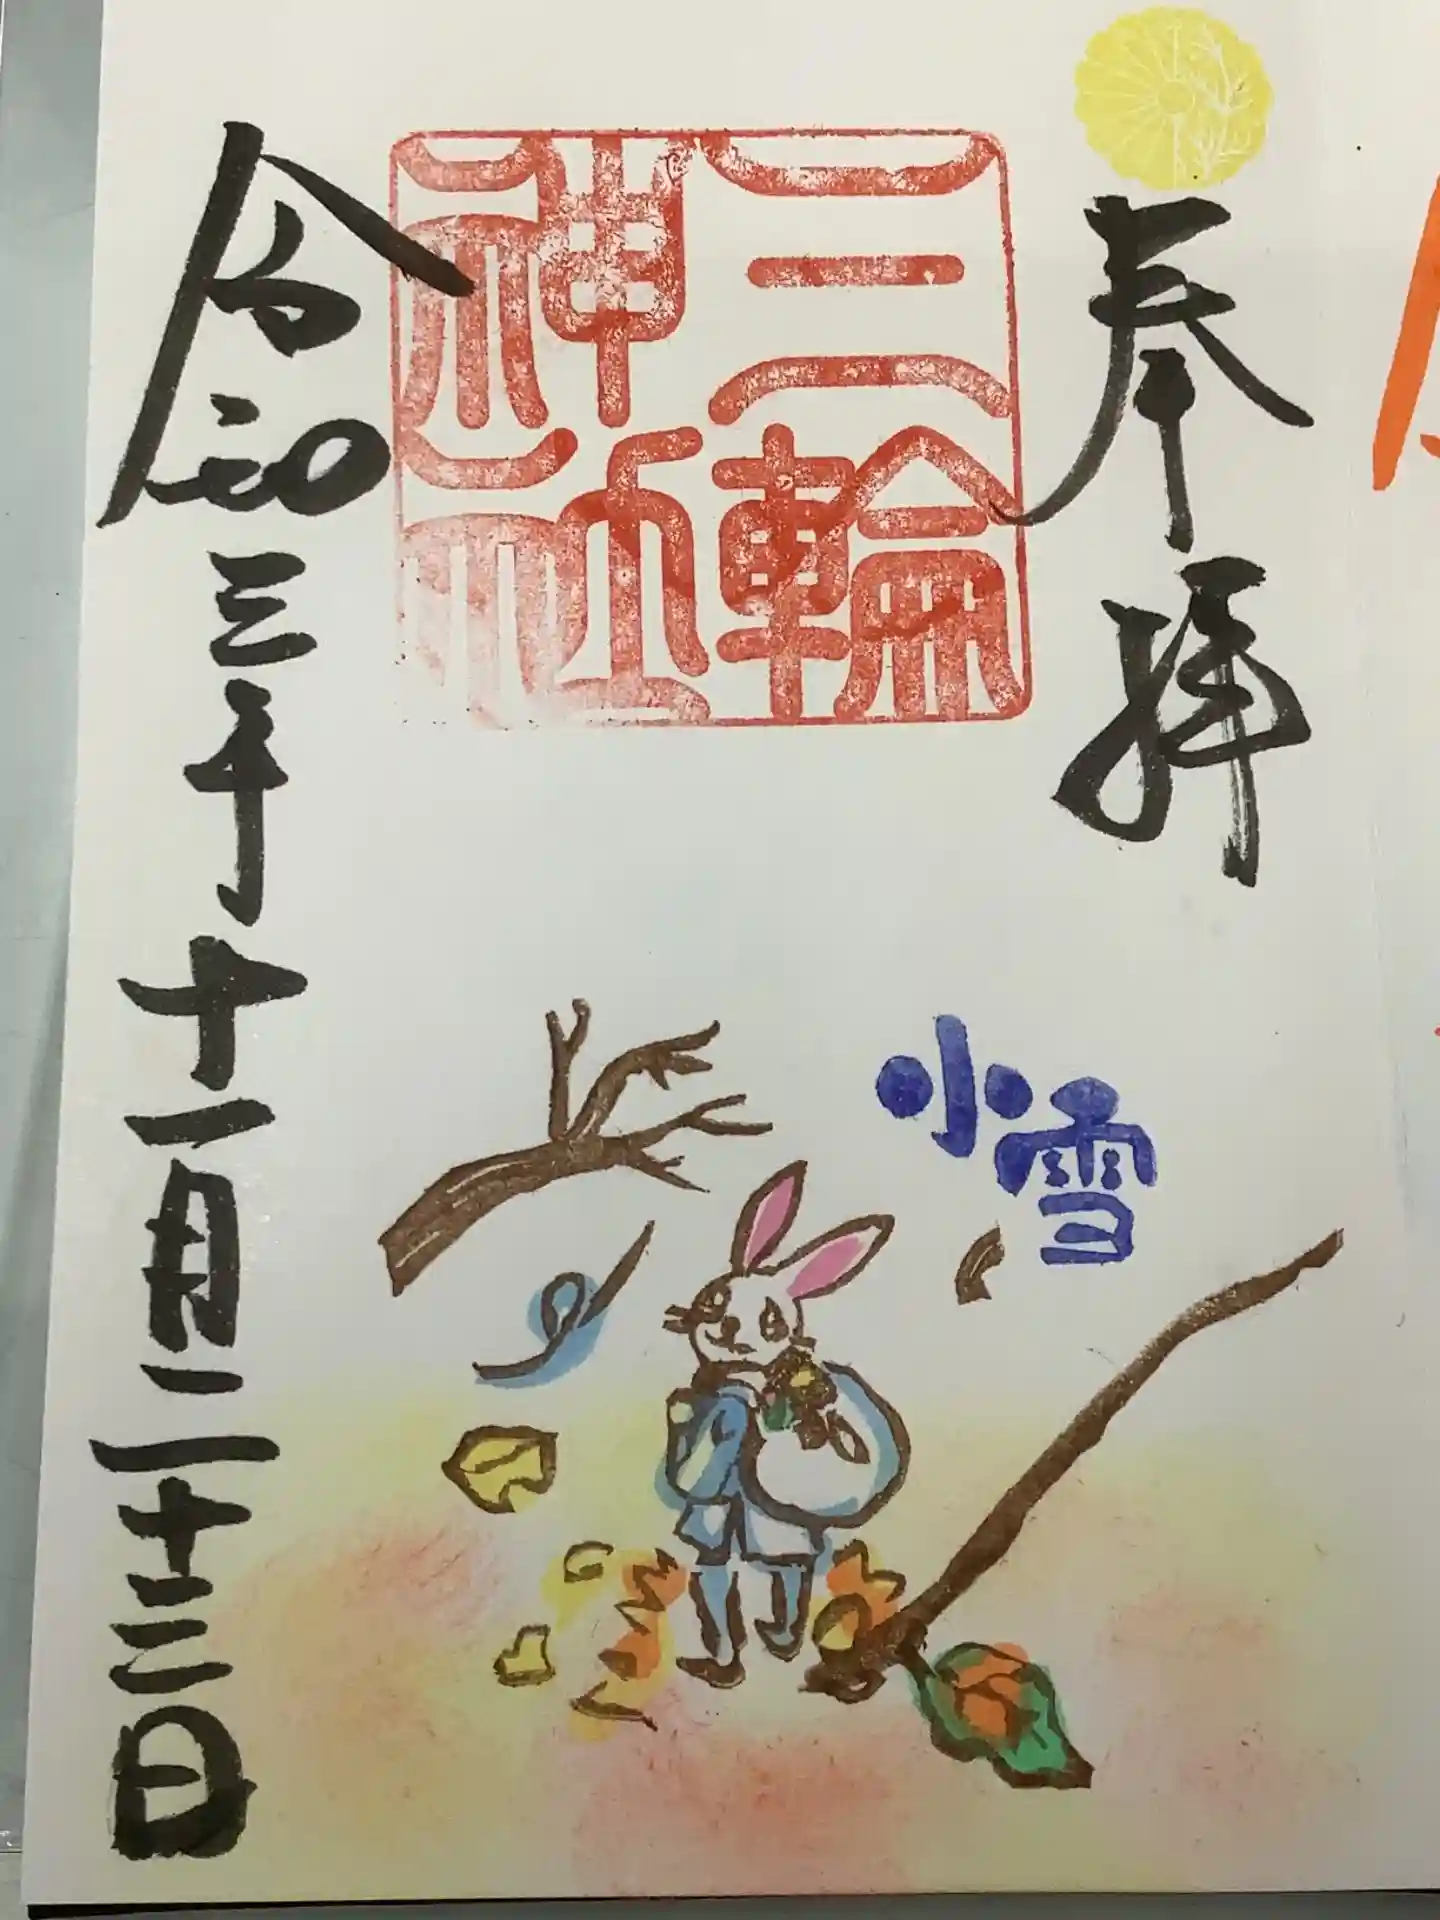 奉拝
三輪
神社
小雪
令和三年十一月二十三日